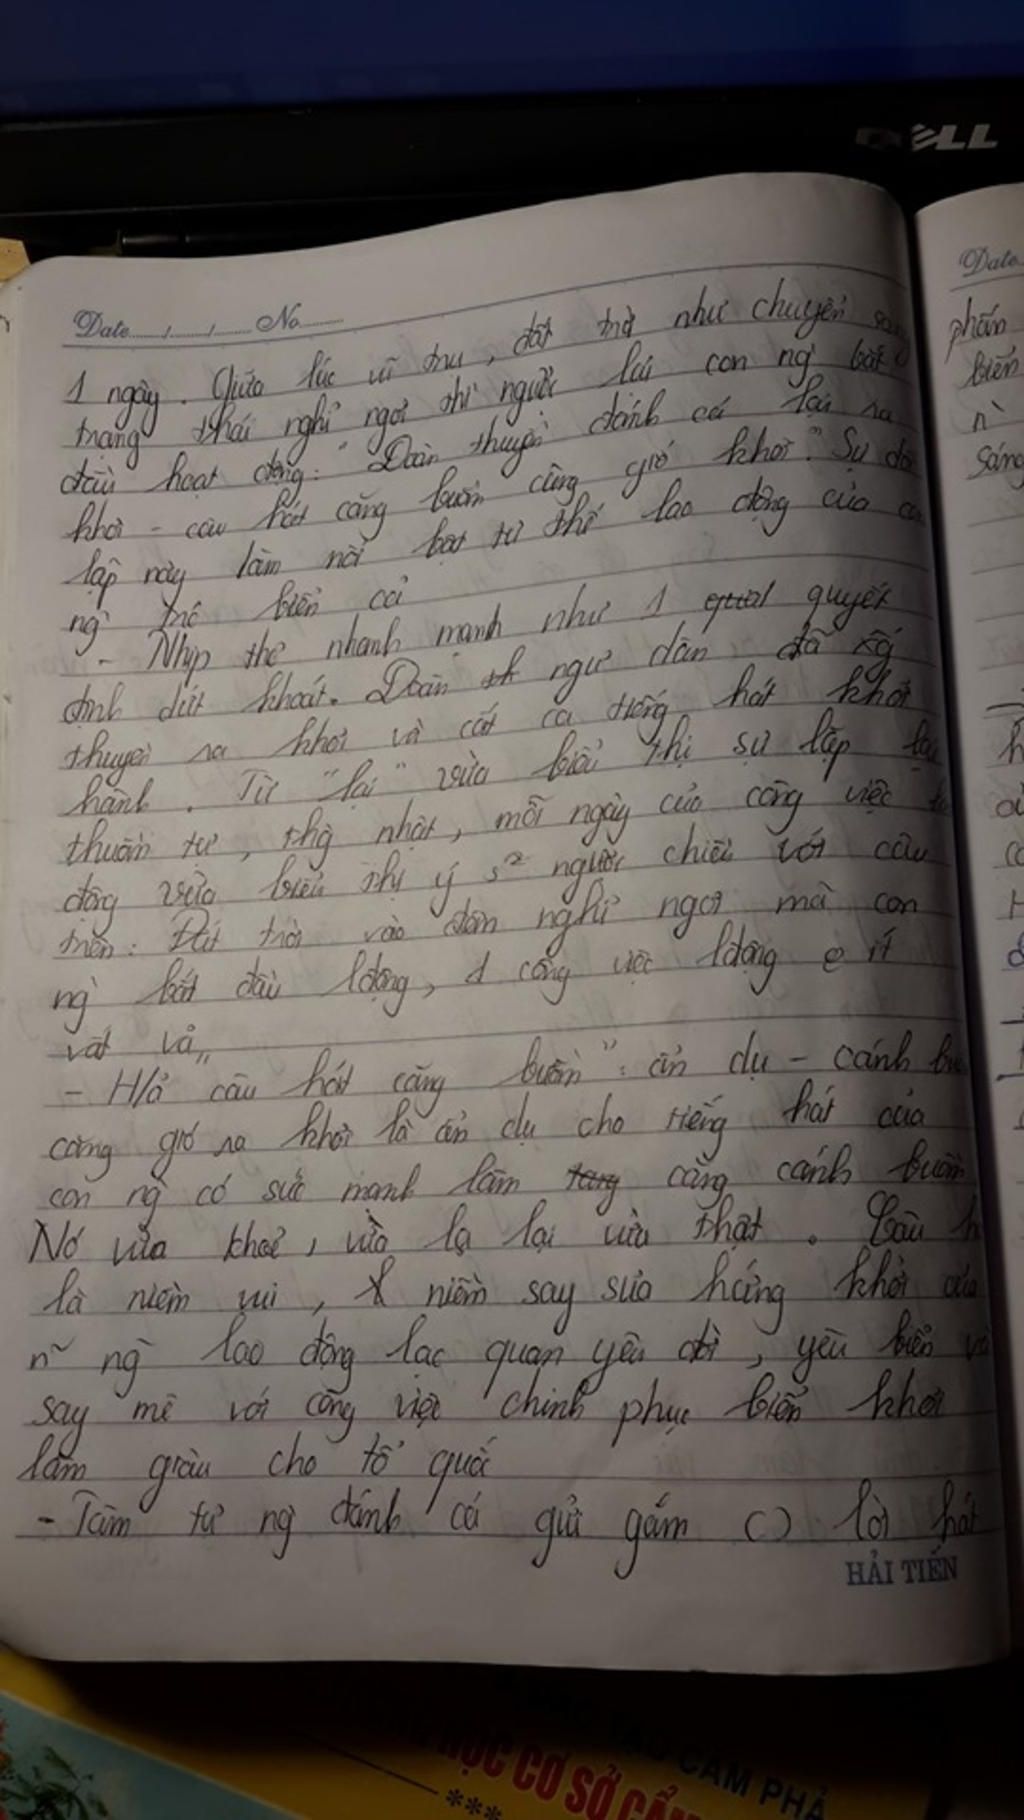 DELL
Date No
1 ngày. Giữa lúc vũ trụ, đất trời như chuyển sang
trạng thái nghỉ ngơi thì người lái con ng bắt
đầu hoạt động: "Đoàn thuyền đánh cá lại ra
khơi - câu hát căng buồm cùng gió khơi". Sự đối
lập này làm nổi bật tư thế lao động của con
ng trc biển cả
- Nhịp thơ nhanh mạnh như 1 quyết
định dứt khoát. Đoàn ngư dân đã xg
thuyền ra khơi và cất cao tiếng hát khởi
hành. Từ "lại" vừa biểu thị sự lặp lại
thuần tự, thg nhật, mỗi ngày của công việc
động vừa biểu thị ý s² ngược chiều với câu
trên: Đất trời vào đêm nghỉ ngơi mà con
ng bắt đầu lđộng, 1 công việc lđộng e ít
vất vả
- H/ả "câu hát căng buồm": ẩn dụ - cánh buồm
căng gió ra khơi là ẩn dụ cho tiếng hát của
con ng có sức mạnh làm căng cánh buồm
Nó vừa khoẻ, vừa lạ lại vừa thật. Câu h
là niềm vui, niềm say sưa hứng khởi của
n~ ng lao động lạc quan yêu đời, yêu biển và
say mê với công việc chinh phục biển khơi
làm giàu cho tổ quốc
- Tâm tư ng đánh cá gửi gắm () lời hát
HẢI TIẾN
Date
phấn
biển
n
sáng
TẠO CẨM PHẢ
HỌC CƠ SỞ CẨM
***